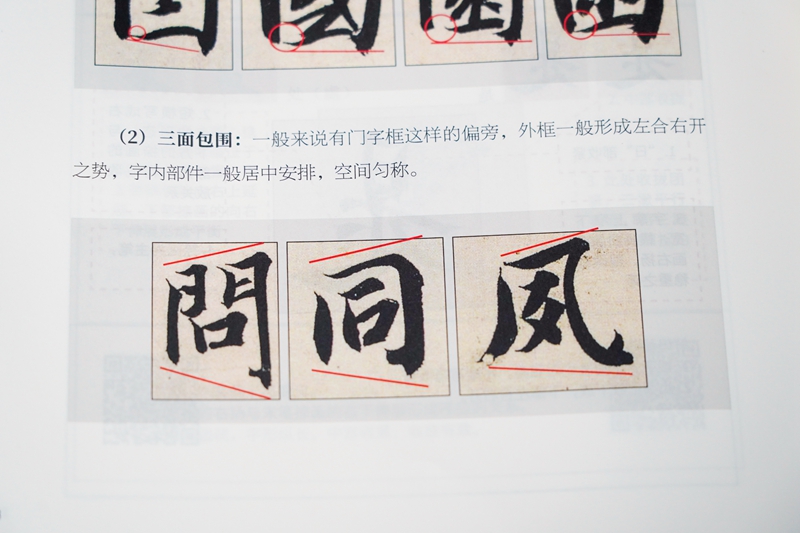 （2）三面包围：一般来说有门字框这样的偏旁，外框一般形成左合右开
之势，字内部件一般居中安排，空间匀称。
問 同 夙